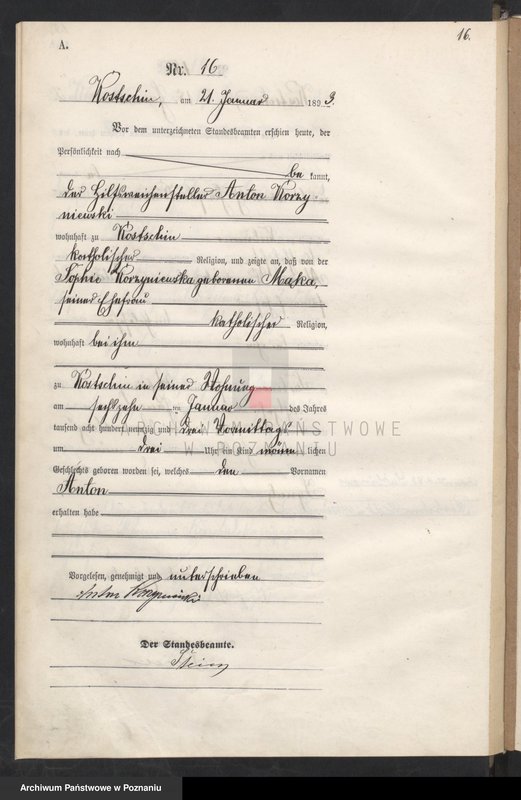 16.
A.
Nr. 16
Kostschin, am 21. Januar 1893.
Vor dem unterzeichneten Standesbeamten erschien heute, der
Persönlichkeit nach
be kannt,
der Hilfsweichensteller Anton Korzy-
niewski
wohnhaft zu Kostschin
katholischer Religion, und zeigte an, daß von der
Sophie Korzyniewska geborenen Maka,
seiner Ehefrau
katholischer Religion,
wohnhaft bei ihm
zu Kostschin in seiner Wohnung
am sechszehn ten Januar des Jahres
tausend acht hundert neunzig und drei Vormittags
um drei Uhr ein Kind männ lichen
Geschlechts geboren worden sei, welches den Vornamen
Anton
erhalten habe
Vorgelesen, genehmigt und unterschrieben
Anton Korzyniewski
Der Standesbeamte.
ARCHIWUM PAŃSTWOWE
W POZNANIU
Archiwum Państwowe w Poznaniu